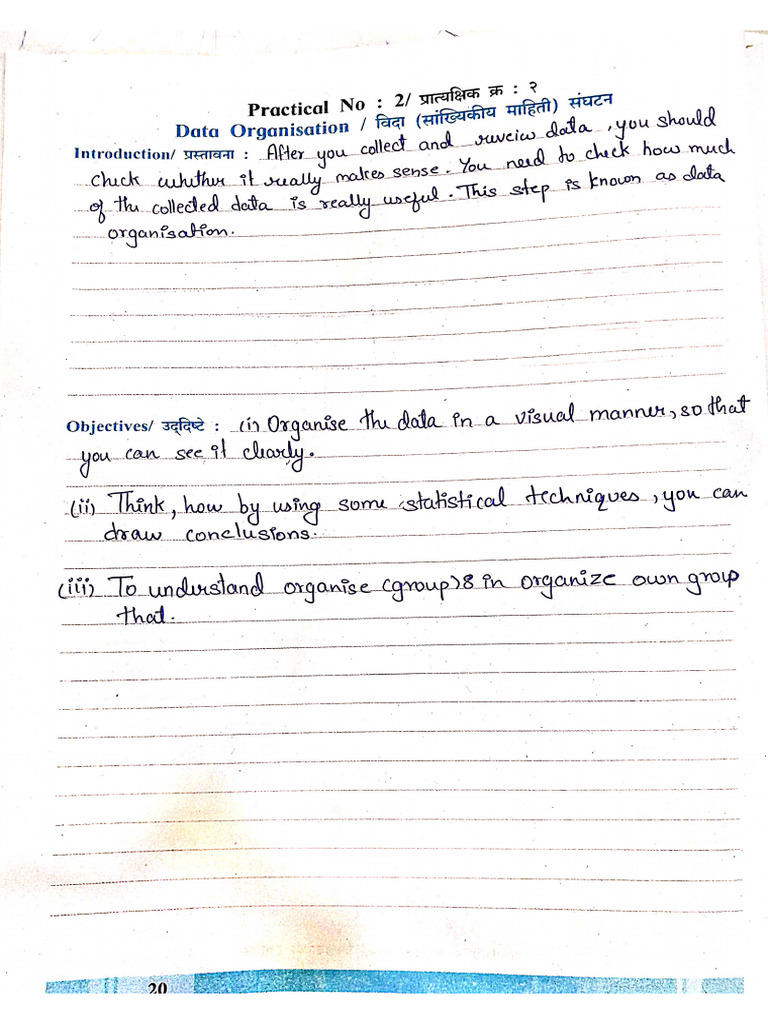 Practical No : 2/ प्रात्यक्षिक क्र : २
Data Organisation / विदा (सांख्यिकीय माहिती) संघटन
Introduction/ प्रस्तावना : After you collect and reveiw data, you should
check whether it really makes sense. You need to check how much
of the collected data is really useful. This step is known as data
organisation.
Objectives/ उद्दिष्टे : (i) Organise the data in a visual manner, so that
you can see it clearly.
(ii) Think, how by using some statistical techniques, you can
draw conclusions.
(iii) To understand organise (group) 8 in organize own group
that.
20